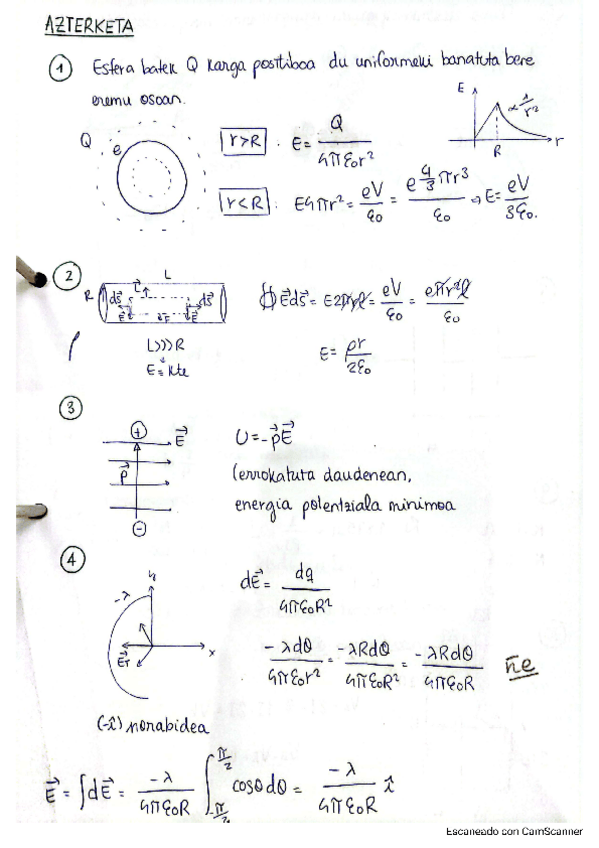 AZTERKETA
① Esfera batek Q karga positiboa du uniformeki banatuta bere
eremu osoan.
Q e
r>R . E = Q / 4πε₀r²
E ∝ 1/r² R r
r<R . E4πr² = eV/ε₀ = e 4/3 πr³ / ε₀ → E = eV / 3ε₀.
② L
R ds⃗ r ds⃗ E⃗ E⃗
∮E⃗ds⃗ = E2πrl = eV/ε₀ = eπr²l/ε₀
L>>>R
E = kte
E = ρr / 2ε₀
③
+ E⃗ p⃗ −
U = -p⃗E⃗
lerrokatuta daudenean,
energia potentziala minimoa
④
-λ y x E⃗r
dE⃗ = dq / 4πε₀R²
-λdθ / 4πε₀r² = -λRdθ / 4πε₀R² = -λRdθ / 4πε₀R ñe
(-î) norabidea
E⃗ = ∫dE⃗ = -λ / 4πε₀R ∫_{-π/2}^{π/2} cosθdθ = -λ / 4πε₀R î
Escaneado con CamScanner